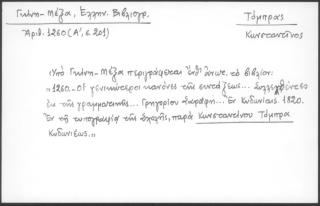 Γκίνη-Μέξα, Ἑλλην. Βιβλιογρ.
Ἀριθ. 1260 (Α', σ. 201)
Τόμπρας
Κωνσταντῖνος
«Ὑπὸ Γκίνη-Μέξα περιγράφεται τὸ βιβλίον:
»1260.- Οἱ γενικώτεροι κανόνες τῆς συντάξεως... Συλλεχθέντες
ἐκ τῆς γραμματικῆς... Γρηγορίου Σαράφη... Ἐν Κυδωνίαις. 1820.
Ἐν τῇ τυπογραφίᾳ τῆς Σχολῆς, παρὰ Κωνσταντίνου Τόμπρα
Κυδωνιέως.»